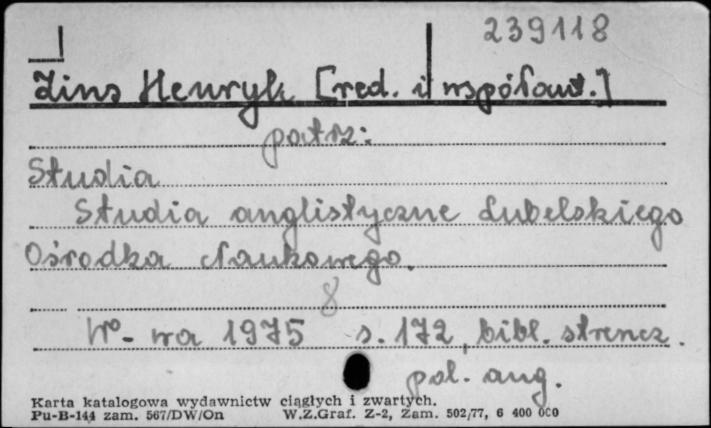 239118
Zins Henryk [red. i współaut.]
patrz:
Studia
Studia anglistyczne Lubelskiego
Ośrodka Naukowego.
8
W-wa 1975 s. 172, bibl. streszcz.
pol. ang.
Karta katalogowa wydawnictw ciągłych i zwartych.
Pu-B-144 zam. 567/DW/On W.Z.Graf. Z-2, Zam. 502/77, 6 400 000